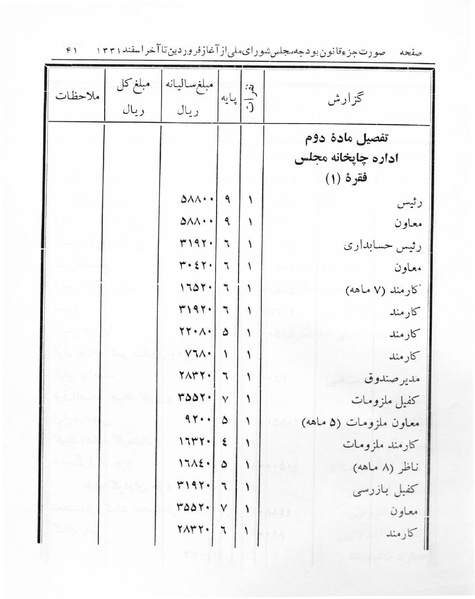 صفحه صورت جزء قانون بودجه مجلس شورای ملی از آغاز فروردین تا آخر اسفند ۱۳۳۱ ۴۱
گزارش نفرات پایه مبلغ سالیانه ریال مبلغ کل ریال ملاحظات
تفصیل مادهٔ دوم
اداره چاپخانه مجلس
فقرهٔ (۱)
رئیس ۱ ۹ ۵۸۸۰۰
معاون ۱ ۹ ۵۸۸۰۰
رئیس حسابداری ۱ ۶ ۳۱۹۲۰
معاون ۱ ۶ ۳۰۴۲۰
کارمند (۷ ماهه) ۱ ۶ ۱۶۵۲۰
کارمند ۱ ۶ ۳۱۹۲۰
کارمند ۱ ۵ ۲۲۰۸۰
کارمند ۱ ۱ ۷۶۸۰
مدیر صندوق ۱ ۶ ۲۸۳۲۰
کفیل ملزومات ۱ ۷ ۳۵۵۲۰
معاون ملزومات (۵ ماهه) ۱ ۵ ۹۲۰۰
کارمند ملزومات ۱ ۴ ۱۶۳۲۰
ناظر (۸ ماهه) ۱ ۵ ۱۶۸۴۰
کفیل بازرسی ۱ ۶ ۳۱۹۲۰
معاون ۱ ۷ ۳۵۵۲۰
کارمند ۱ ۶ ۲۸۳۲۰